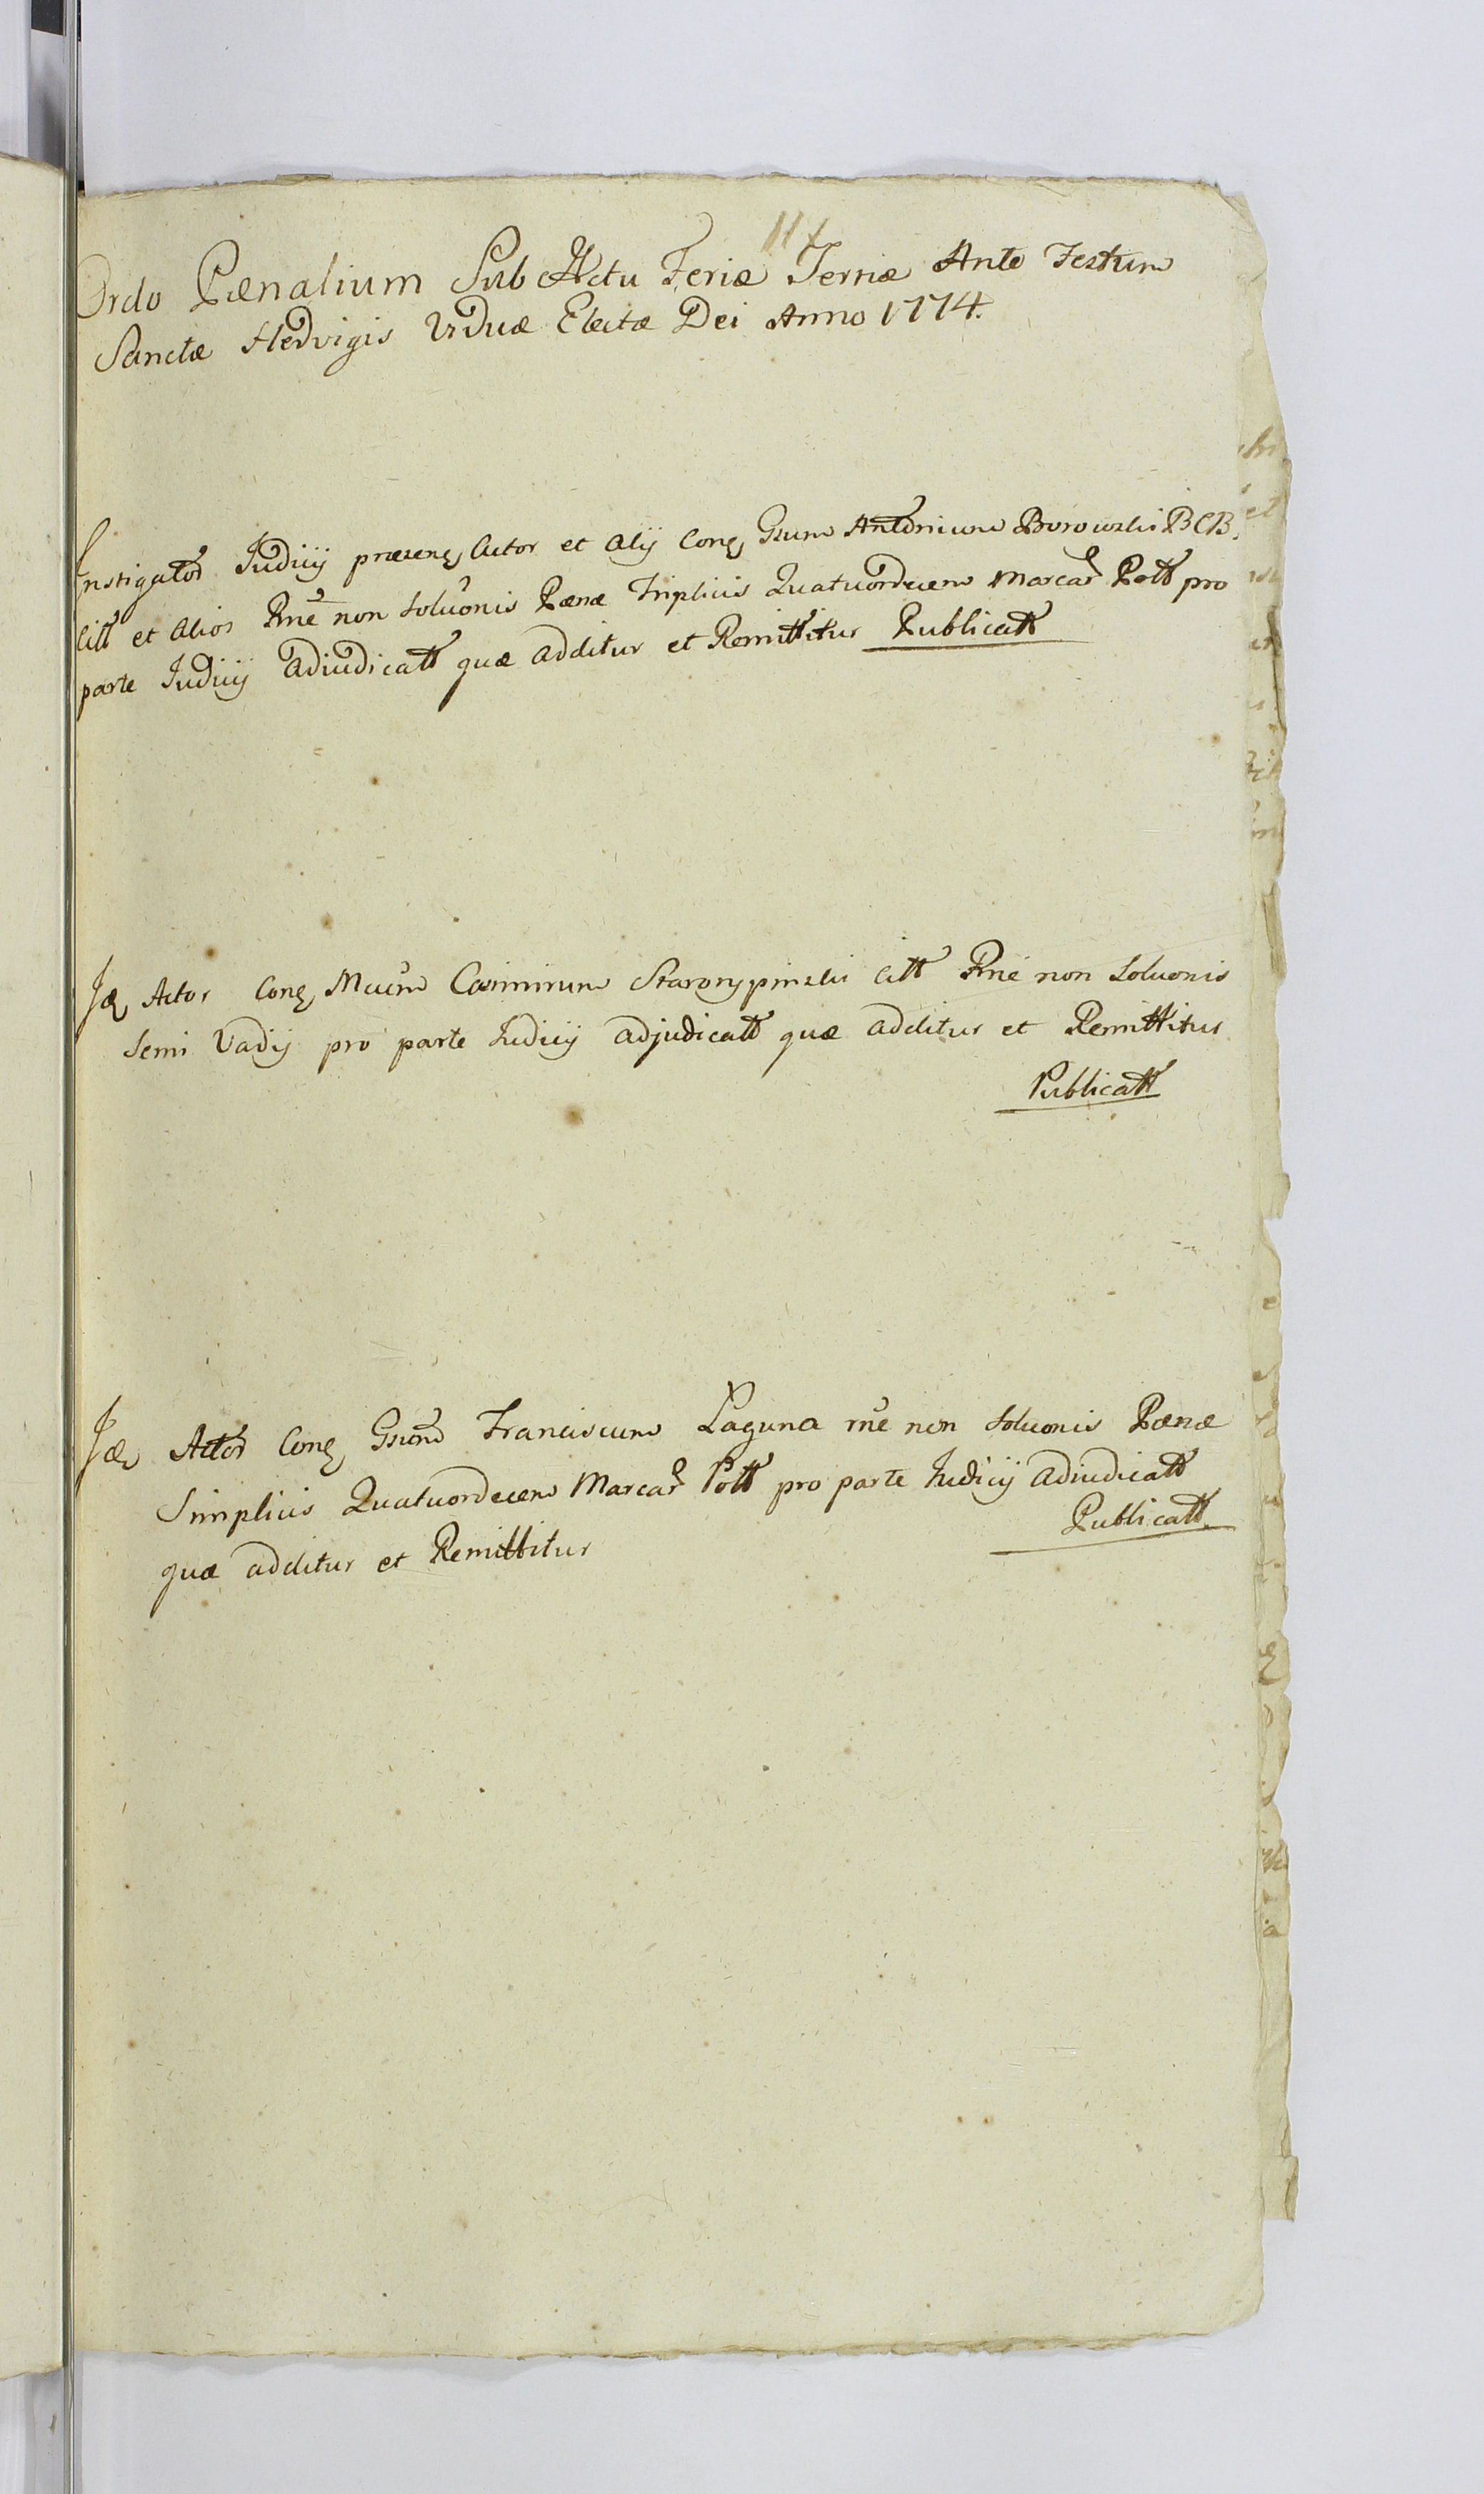 117
Ordo Pænalium Sub Actu Feriæ Tertiæ Ante Festum
Sanctæ Hedvigis Viduæ Electæ Dei Anno 1774.
Instigator Judicij præsens Actor et Alij Conq Gsum Antonium Borowski BCB.
Citt et Alios Rne non Soluonis Pænæ Triplicis Quatuordecem Marcar Pott pro
parte Judicij Adiudicatt quæ additur et Remittitur Publicatt
Id Actor Conq Mucum Casimirum Starorypinski Citt Rne non Soluonis
Semi Vadij pro parte Judicij adjudicatt quæ additur et Remittitur
Publicatt
Id Actor Conq Gsum Franciscum Laguna rne non Soluonis Pænæ
Simplicis Quatuordecem Marcar Pott pro parte Judicij adiudicatt
quæ additur et Remittitur Publicatt